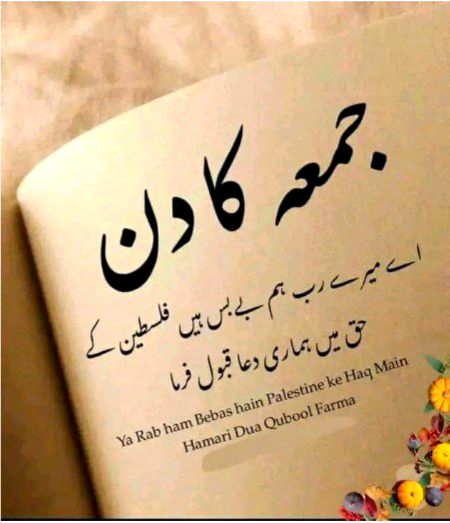 جمعہ کا دن
اے میرے رب ہم بے بس ہیں فلسطین کے
حق میں ہماری دعا قبول فرما
Ya Rab ham Bebas hain Palestine ke Haq Main
Hamari Dua Qubool Farma